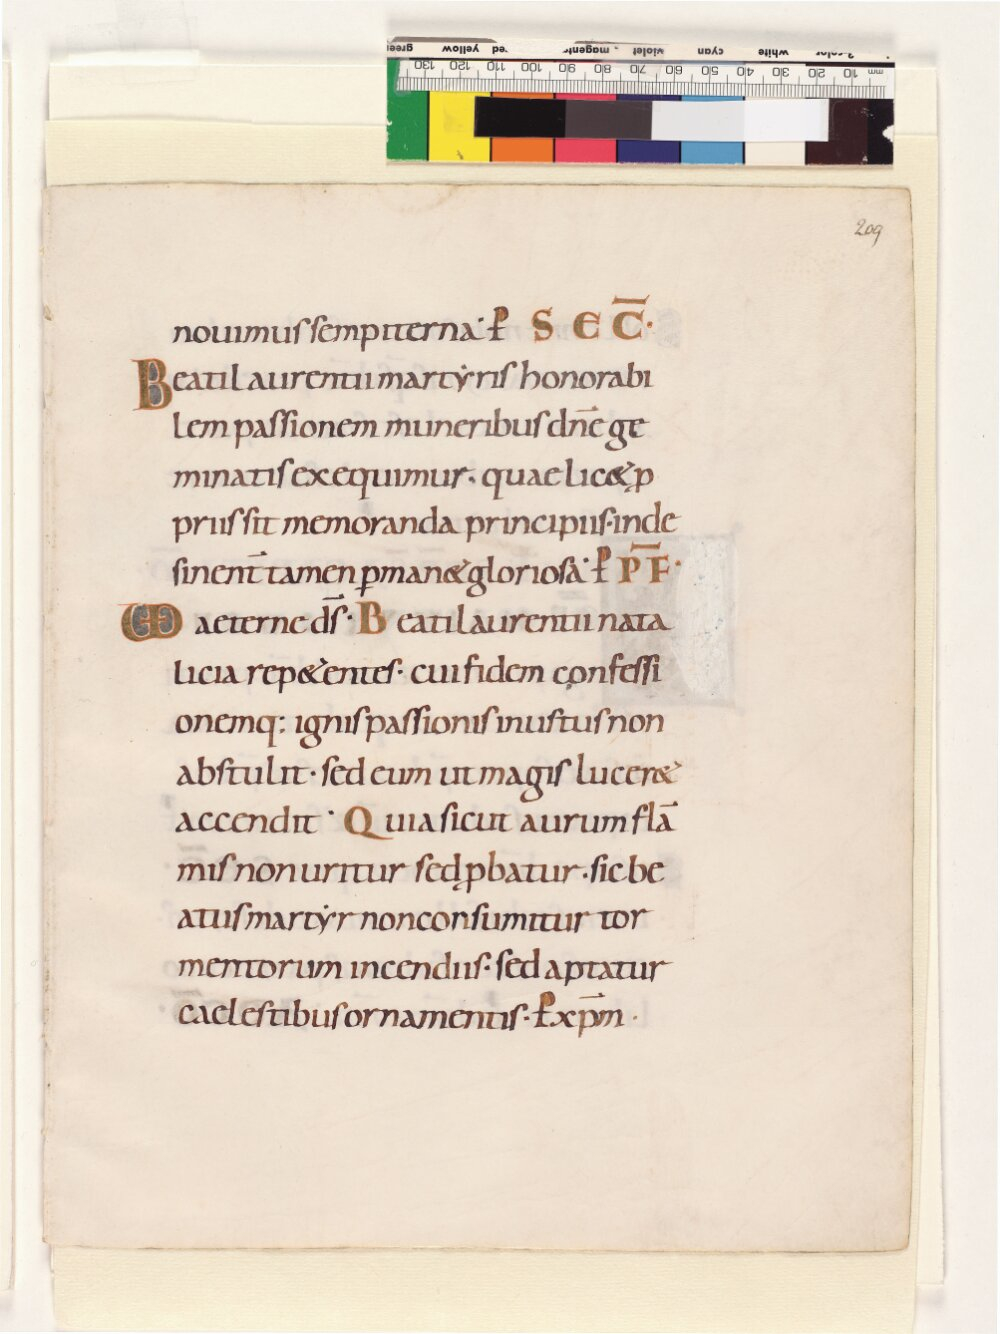 green yellow red magenta violet cyan white 3-color
130 120 110 100 90 80 70 60 50 40 30 20 10 mm
209
nouimus sempiterna· ꝑ SEC̅·
Beati laurentii martẏris honorabi
lem passionem muneribus dn̅e ge
minatis exequimur· quae lic& ꝓ
priis sit memoranda principiis· inde
sinent̅ tamen ꝑman& gloriosa· ꝑ P̅F·
UD aeterne ds̅· Beati laurentii nata
licia rep&entes· cui fidem confessi
onemq: ignis passionis inustus non
abstulit· sed eum ut magis lucer&
accendit· Quia sicut aurum fla̅
mis non uritur sed ꝓbatur· sic be
atus martẏr non consumitur tor
mentorum incendiis· sed aptatur
caelestibus ornamentis· ꝑ xp̅m·